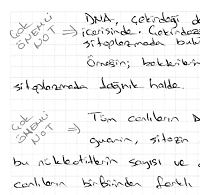 Çok ÖNEMLİ NOT => DNA, çekirdeği
içerisinde. Çekirdeğ
sitoplazmada bulu
Örneğin; bakteriler
sitoplazmada dağınık halde.
Çok ÖNEMLİ NOT => Tüm canlıların D
guanin, sitozin
bu nükleotitlerin sayısı ve
canlıların birbirinden farklı